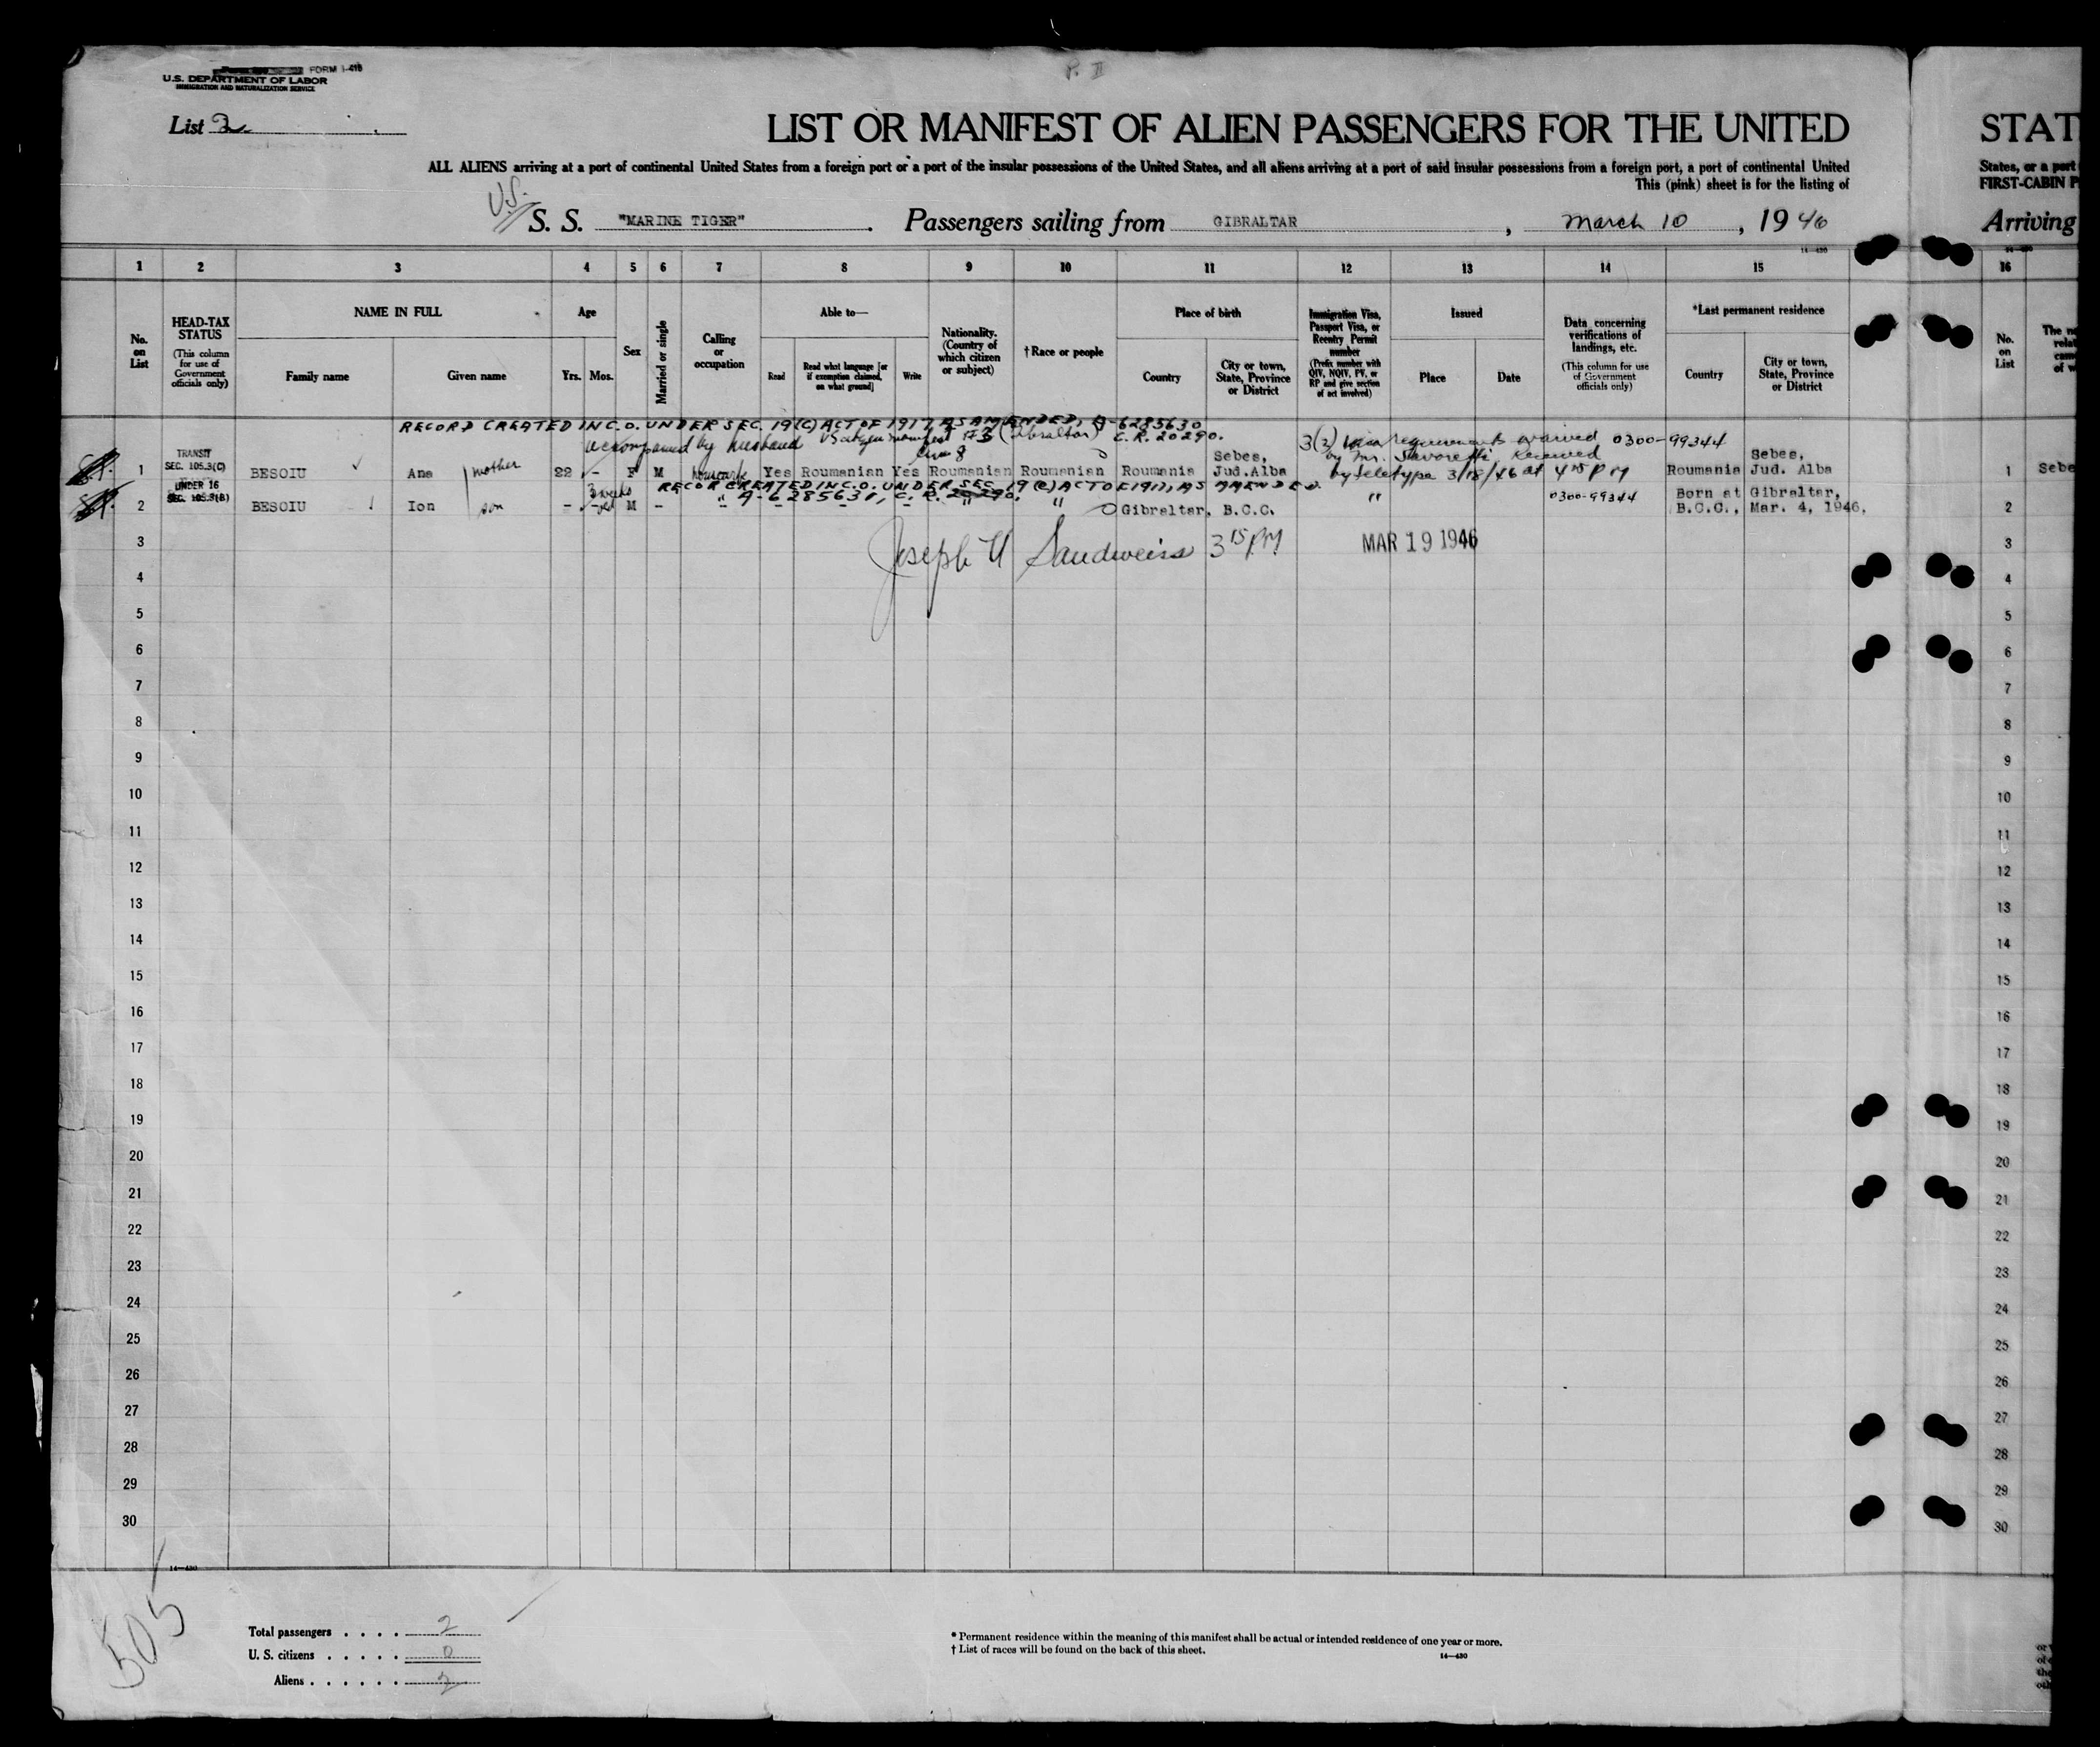 P. II
FORM I-415
U.S. DEPARTMENT OF LABOR
IMMIGRATION AND NATURALIZATION SERVICE
List 2
LIST OR MANIFEST OF ALIEN PASSENGERS FOR THE UNITED
STAT
ALL ALIENS arriving at a port of continental United States from a foreign port or a port of the insular possessions of the United States, and all aliens arriving at a port of said insular possessions from a foreign port, a port of continental United
States, or a port
This (pink) sheet is for the listing of
FIRST-CABIN P
U.S.
S. S. "MARINE TIGER" . Passengers sailing from GIBRALTAR , March 10 , 19 46
Arriving
14—430
1 2 3 4 5 6 7 8 9 10 11 12 13 14 15 16
No. on List
HEAD-TAX STATUS
(This column for use of Government officials only)
NAME IN FULL
Family name
Given name
Age
Yrs. Mos.
Sex
Married or single
Calling or occupation
Able to—
Read
Read what language [or if exemption claimed, on what ground]
Write
Nationality. (Country of which citizen or subject)
†Race or people
Place of birth
Country
City or town, State, Province or District
Immigration Visa, Passport Visa, or Reentry Permit number
(Prefix number with QIV, NQIV, PV, or RP and give section of act involved)
Issued
Place
Date
Data concerning verifications of landings, etc.
(This column for use of Government officials only)
*Last permanent residence
Country
City or town, State, Province or District
No. on List
RECORD CREATED IN C.O. UNDER SEC. 19(C) ACT OF 1917, AS AMENDED, A-6285630
C.R. 20290.
accompanied by husband manifest #3 (Gibraltar)
line 8
3(2) Visa requirements waived 0300-99344
by Mr. Savoretti. Received
by teletype 3/18/46 at 4 15 PM
TRANSIT
SEC. 105.3(C)
1 BESOIU Ana mother 22 - F M housewife Yes Roumanian Yes Roumanian Roumanian Roumania Sebes, Jud.Alba Roumania Sebes, Jud. Alba 1 Sebe
RECORD CREATED IN C.O. UNDER SEC. 19(C) ACT OF 1917, AS AMENDED.
A-6285631, C.R. 20290.
UNDER 16
SEC. 105.3(B)
2 BESOIU Ion son - 3 weeks M - " - - - " " Gibraltar, B.C.C. " 0300-99344 Born at Gibraltar, B.C.C., Mar. 4, 1946. 2
3 Joseph H Sandweiss 3 15 PM MAR 19 1946 3
4 4
5 5
6 6
7 7
8 8
9 9
10 10
11 11
12 12
13 13
14 14
15 15
16 16
17 17
18 18
19 19
20 20
21 21
22 22
23 23
24 24
25 25
26 26
27 27
28 28
29 29
30 30
14—430
505
Total passengers . . . . 2
U. S. citizens . . . . . 0
Aliens . . . . . . 2
* Permanent residence within the meaning of this manifest shall be actual or intended residence of one year or more.
† List of races will be found on the back of this sheet.
14—430